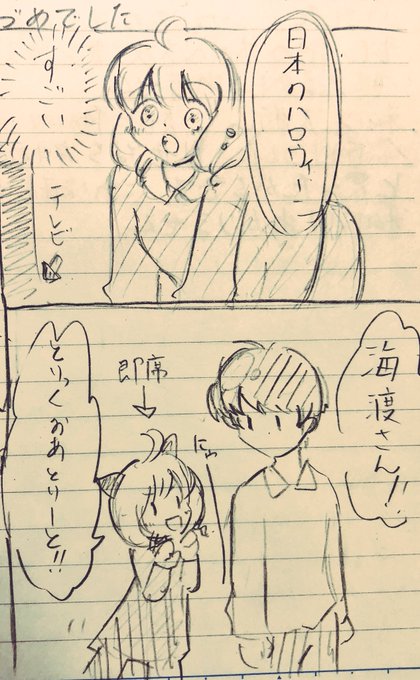 づめでした
日本のハロウィーン
すごい
テレビ
海渡さん!!
にゅ
即席
とりっくおあとりーと!!